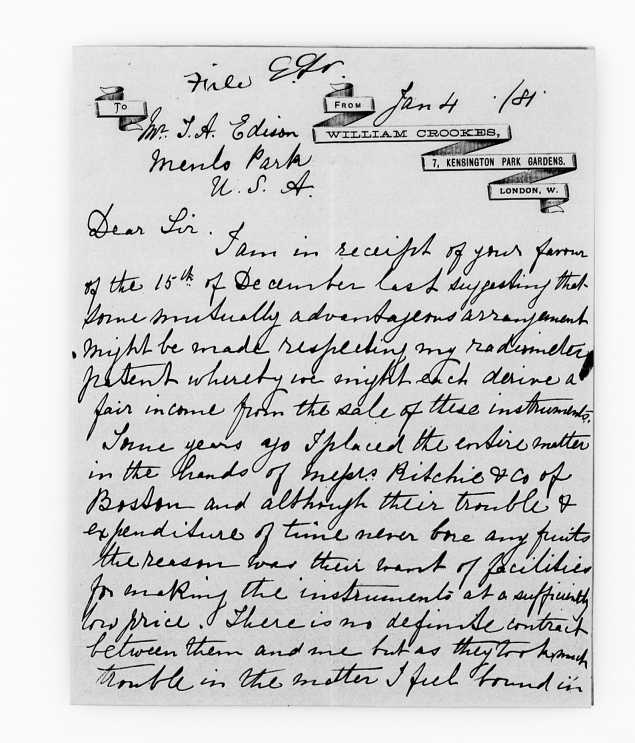 File
TO
FROM
Jan 4 /81.
Mr. T. A. Edison
WILLIAM CROOKES,
Menlo Park
7, KENSINGTON PARK GARDENS.
U. S. A.
LONDON, W.
Dear Sir.
I am in receipt of your favour
of the 15th of December last suggesting that
some mutually advantageous arrangement
might be made respecting my radiometer
patent whereby we might each derive a
fair income from the sale of these instruments.
Some years ago I placed the entire matter
in the hands of Messrs. Ritchie & Co of
Boston and although their trouble &
expenditure of time never bore any fruits
the reason was their want of facilities
for making the instruments at a sufficiently
low price. There is no definite contract
between them and me but as they took much
trouble in the matter I feel bound in